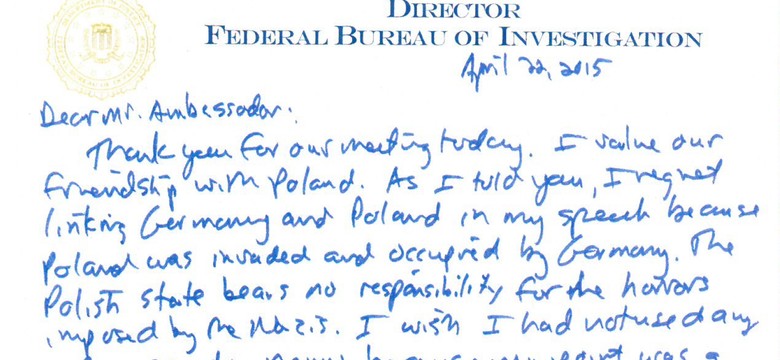 DIRECTOR
FEDERAL BUREAU OF INVESTIGATION
April 22, 2015
Dear Mr. Ambassador:
Thank you for our meeting today. I value our
friendship with Poland. As I told you, I regret
linking Germany and Poland in my speech because
Poland was invaded and occupied by Germany. The
Polish state bears no responsibility for the horrors
imposed by the Nazis. I wish I had not used any
because my point was a